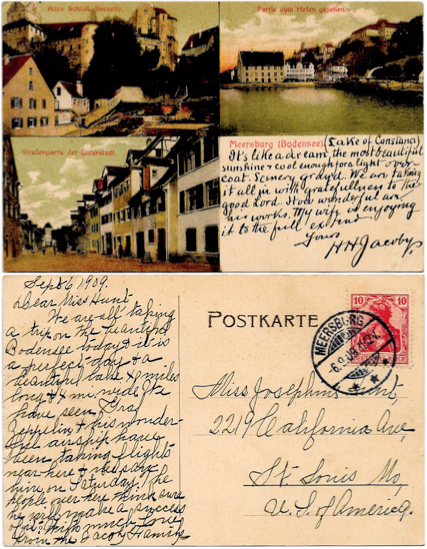 Altes Schloß, Seeseite.
Partie vom Hafen gesehen.
Straßenpartie der Unterstadt.
Meersburg (Bodensee) (Lake of Constance)
It's like a dream, the most beautiful
sunshine & cool enough for a light over
coat. Scenery grand. We are taking
it all in with gratefulness to the
good Lord. How wonderful are
his works. My wife is enjoying
it to the full extent
Yours
H H Jacoby
Sept 6 1909.
Dear Miss Hunt
We are all taking
a trip on the beautiful
Bodensee today & it is
a perfect day & a
beautiful lake 40 miles
long & 8 mi. wide. We
have seen Graf
Zeppelin & his wonder-
ful airship have
been taking flights
near here & we saw
him on Saturday. The
people over here think sure
he will make a success
of it. With much love
from the Jacoby Family
POSTKARTE
10 10
MEERSBURG
6.9.09
Miss Josephine Hunt,
2219 California Ave,
St Louis Mo,
U.S. of America.